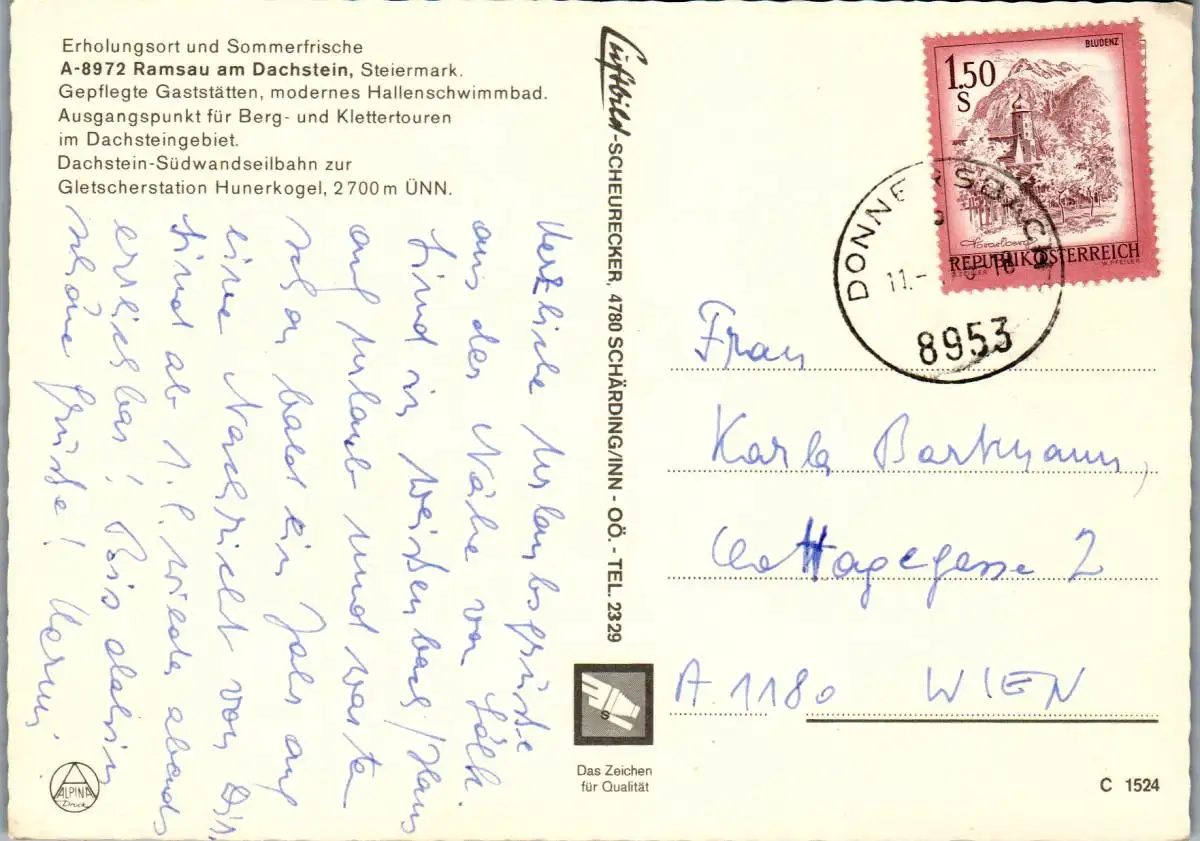 Erholungsort und Sommerfrische
A-8972 Ramsau am Dachstein, Steiermark.
Gepflegte Gaststätten, modernes Hallenschwimmbad.
Ausgangspunkt für Berg- und Klettertouren
im Dachsteingebiet.
Dachstein-Südwandseilbahn zur
Gletscherstation Hunerkogel, 2700 m ÜNN.
Herzliche Urlaubsgrüße
aus der Nähe von Sölk.
Sind in Weißenbach/Haus
auf Urlaub und warten
schon bald ein Jahr auf
eine Nachricht von Dir.
Sind ab 1.8. wieder abends
erreichbar! Bis dahin
schöne Grüße!
Luftbild-SCHEURECKER, 4780 SCHÄRDING/INN - OÖ. - TEL. 2329
Das Zeichen
für Qualität
ALPINA
Druck
BLUDENZ
1.50
S
Vorarlberg
REPUBLIK ÖSTERREICH
W. PFEILER
DONNERSBACH
11.-
8953
Frau
Karla Bartmann,
Cottagegasse 2
A. 1180 WIEN
C 1524